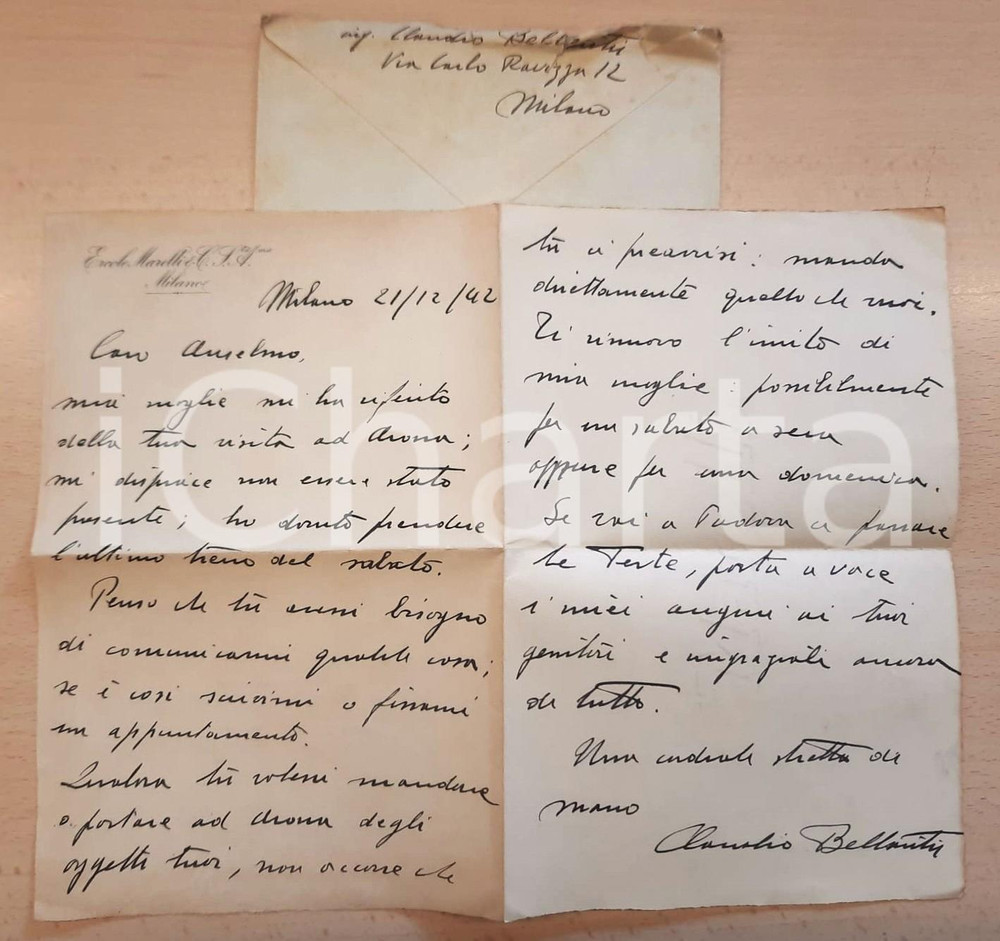 ing. Claudio
Via Carlo Ravizza 12
Milano
Ercole Marelli & C. S. A.
Milano
Milano 21/12/42
Caro Anselmo,
mia moglie mi ha riferito
della tua visita ad Arona;
mi dispiace non essere stato
presente; ho dovuto prendere
l'ultimo treno del sabato.
Penso che tu avessi bisogno
di comunicarmi qualche cosa;
se è così scrivimi o fissami
un appuntamento.
Qualora tu volessi mandare
o portare ad Arona degli
oggetti tuoi, non occorre che
tu ci preavvisi: manda
direttamente quello che vuoi.
Ti rinnovo l'invito di
mia moglie: possibilmente
per un sabato a sera
oppure per una domenica.
Se vai a Padova a passare
le Feste, porta a voce
i miei auguri ai tuoi
genitori e ringraziali ancora
di tutto.
Una cordiale stretta di
mano
Claudio
iCharta